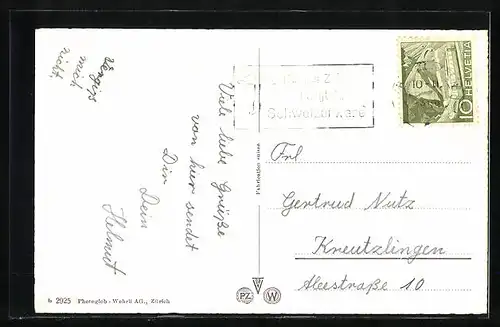 Vergiß
mich
nicht.
Viele liebe Grüße
von hier sendet
Dir
Dein
Helmut
Fabrication suisse
HELVETIA
10
Schweizer Ware
Frl
Gertrud Nutz
Kreutzlingen
Aleestraße 10
b 2925 Photoglob-Wehrli AG., Zürich
PZ
W